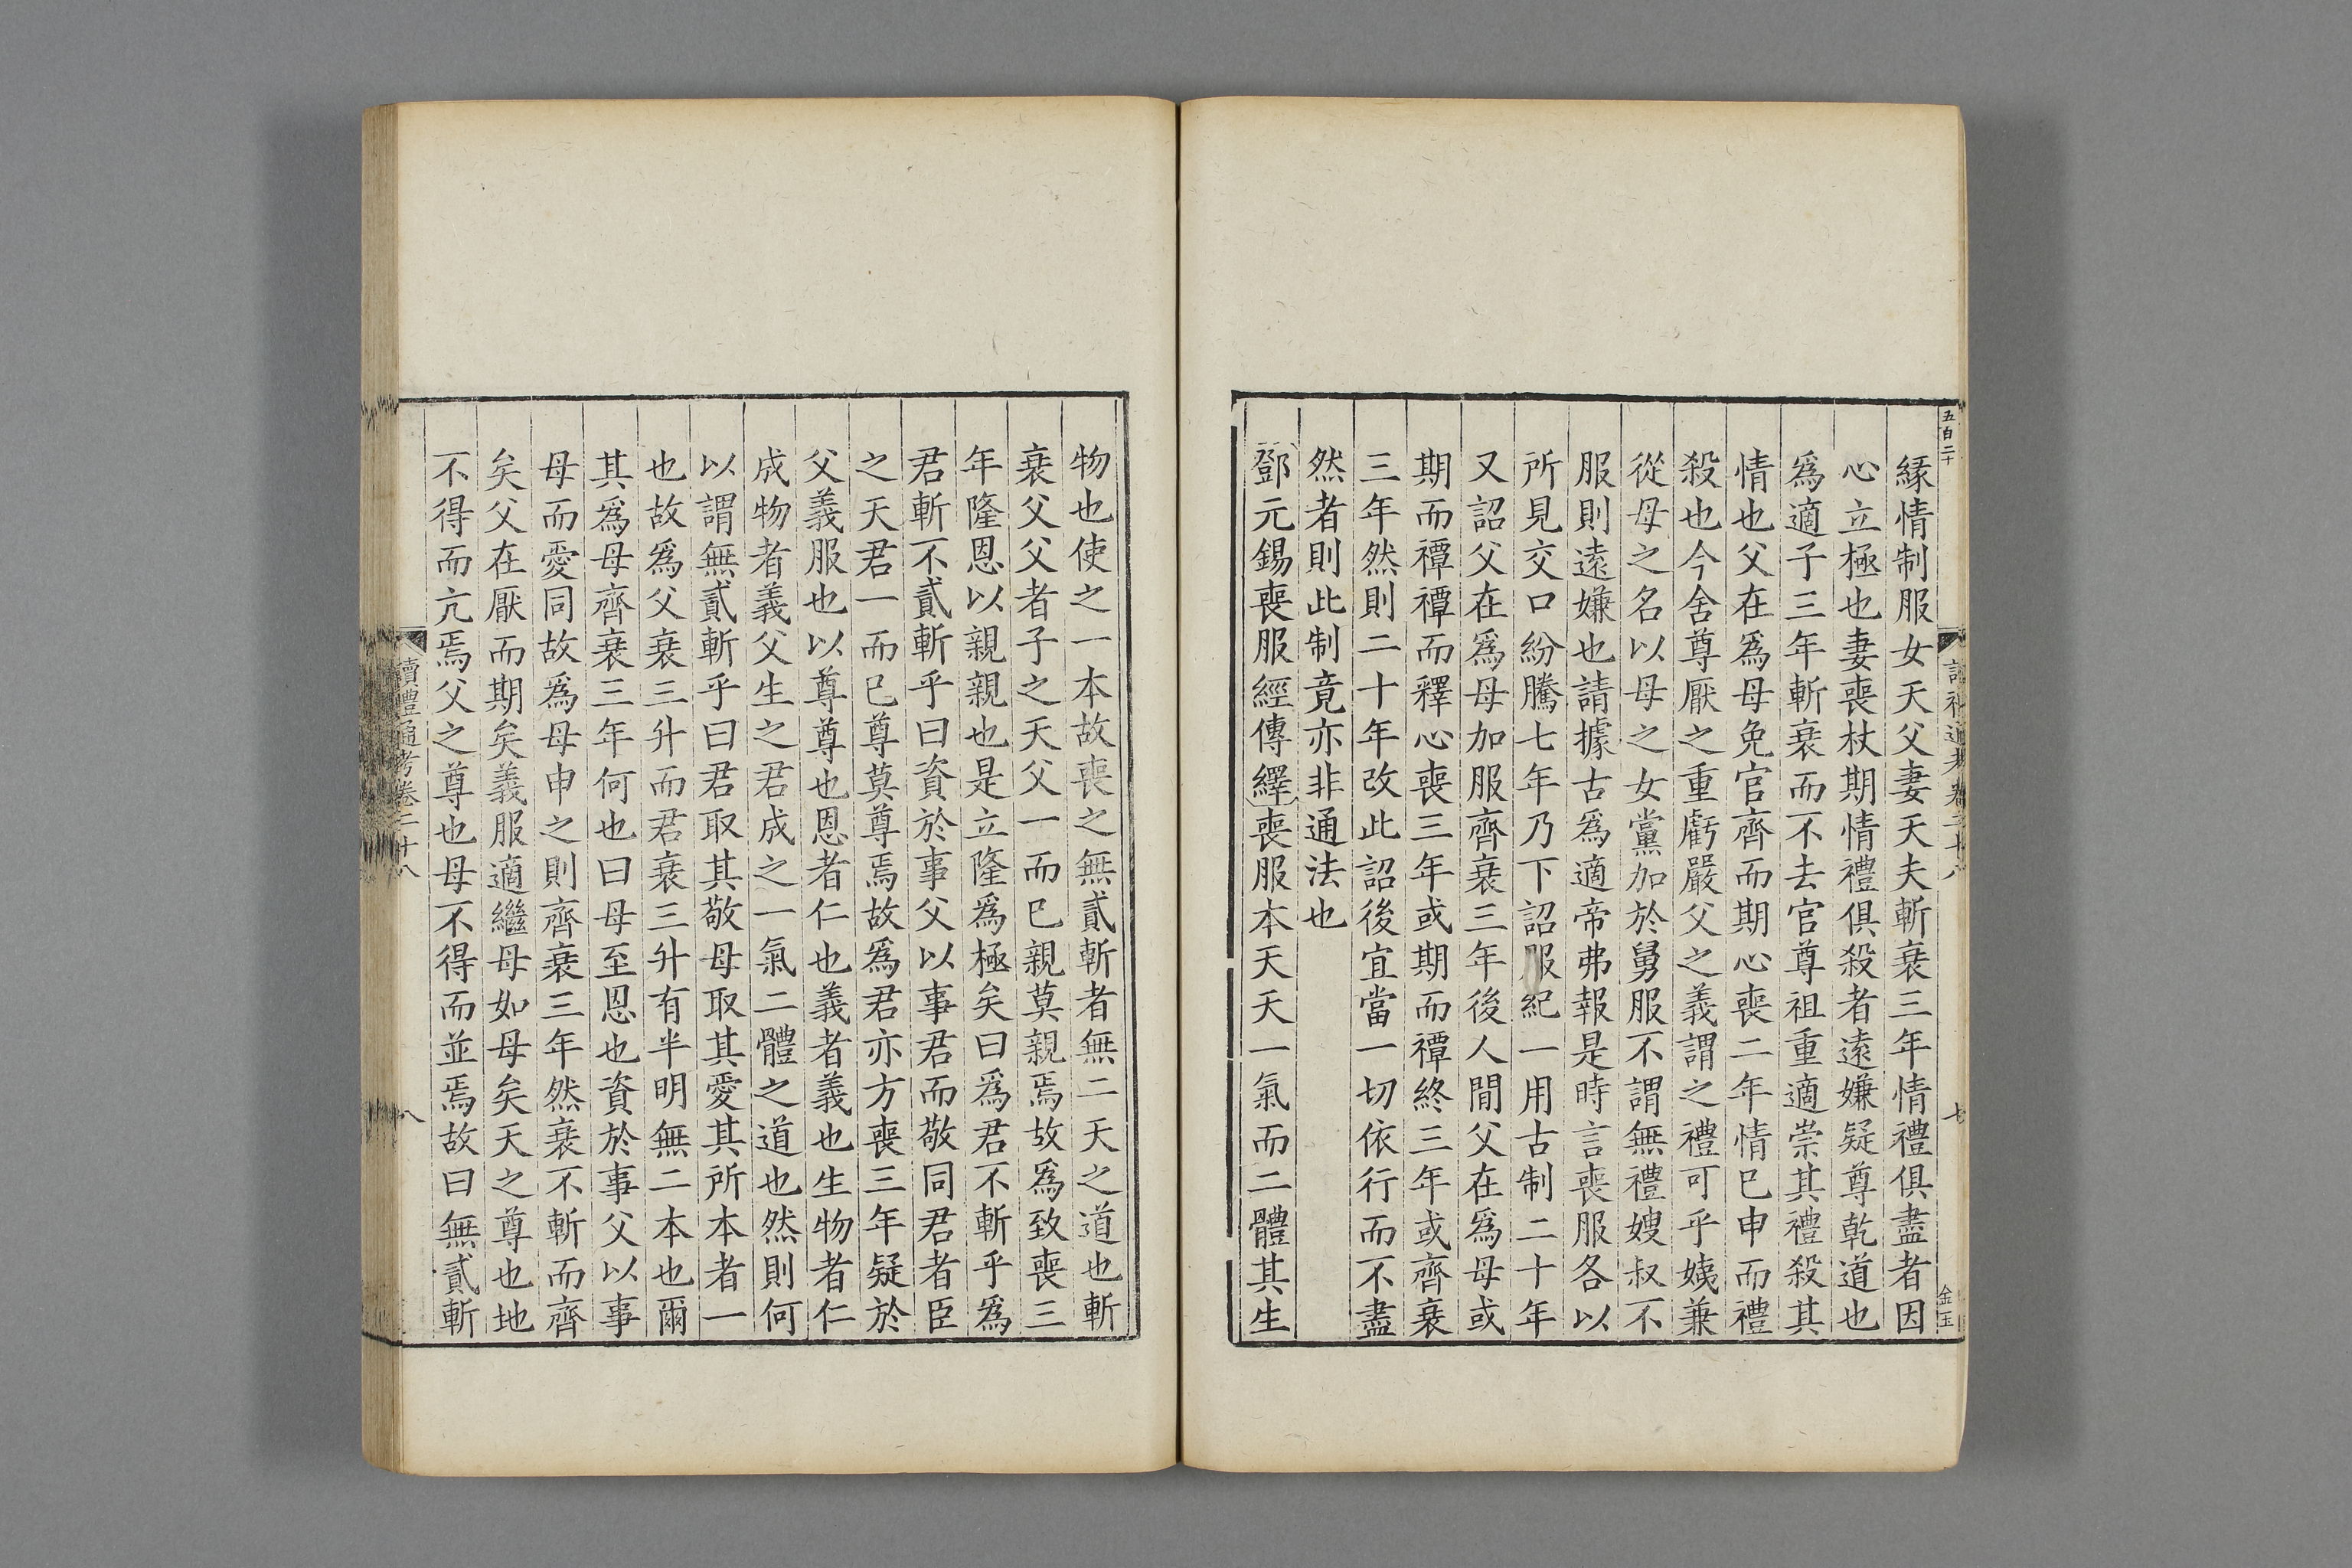 五百二十
讀禮通考卷二十八
七
金玉
緣情制服女天父妻天夫斬衰三年情禮俱盡者因
心立極也妻喪杖期情禮俱殺者遠嫌疑尊乾道也
爲適子三年斬衰而不去官尊祖重適崇其禮殺其
情也父在爲母免官齊而期心喪二年情巳申而禮
殺也今舍尊厭之重虧嚴父之義謂之禮可乎姨兼
從母之名以母之女黨加於舅服不謂無禮嫂叔不
服則遠嫌也請據古爲適帝弗報是時言喪服各以
所見交口紛騰七年乃下詔服紀一用古制二十年
又詔父在爲母加服齊衰三年後人間父在爲母或
期而禫禫而釋心喪三年或期而禫終三年或齊衰
三年然則二十年改此詔後宜當一切依行而不盡
然者則此制竟亦非通法也
鄧元錫喪服經傳繹喪服本天天一氣而二體其生
物也使之一本故喪之無貳斬者無二天之道也斬
衰父父者子之天父一而巳親莫親焉故爲致喪三
年隆恩以親親也是立隆爲極矣曰爲君不斬乎爲
君斬不貳斬乎曰資於事父以事君而敬同君者臣
之天君一而巳尊莫尊焉故爲君亦方喪三年疑於
父義服也以尊尊也恩者仁也義者義也生物者仁
成物者義父生之君成之一氣二體之道也然則何
以謂無貳斬乎曰君取其敬母取其愛其所本者一
也故爲父衰三升而君衰三升有半明無二本也爾
其爲母齊衰三年何也曰母至恩也資於事父以事
母而愛同故爲母申之則齊衰三年然衰不斬而齊
矣父在厭而期矣義服適繼母如母矣天之尊也地
不得而亢焉父之尊也母不得而並焉故曰無貳斬
讀禮通考卷二十八
八